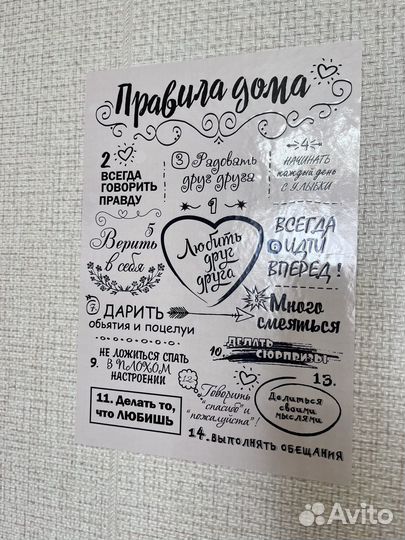 Правила дома
1
Любить
друг
друга
2
ВСЕГДА
ГОВОРИТЬ
ПРАВДУ
3 Радовать
друг друга
4
НАЧИНАТЬ
каждый день
С УЛЫБКИ
5
Верить
в себя
6
ВСЕГДА
ИДТИ
ВПЕРЕД!
7. ДАРИТЬ
обьятия и поцелуи
Много
смеяться
9.
НЕ ЛОЖИТЬСЯ СПАТЬ
В ПЛОХОМ
НАСТРОЕНИИ
10. ДЕЛАТЬ
СЮРПРИЗЫ
11. Делать то,
что ЛЮБИШЬ
12
Говорить
"спасибо" и
"пожалуйста"!
13.
Делиться
своими
мыслями
14. ВЫПОЛНЯТЬ ОБЕЩАНИЯ
Avito